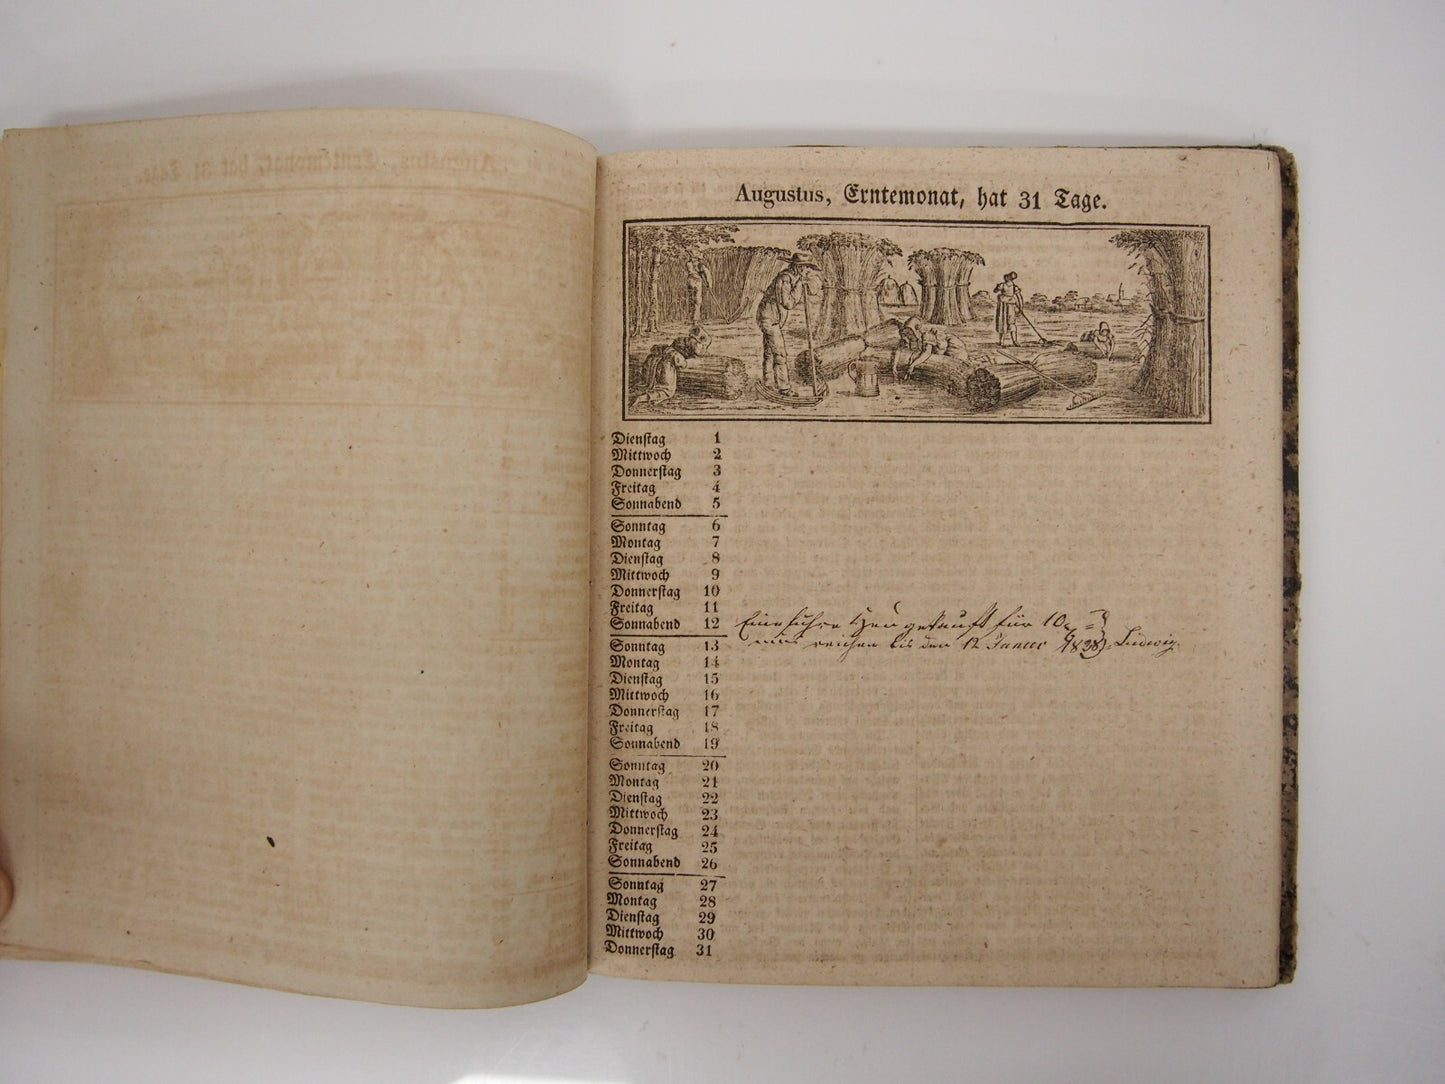 Augustus, Erntemonat, hat 31 Tage.
Dienstag 1
Mittwoch 2
Donnerstag 3
Freitag 4
Sonnabend 5
Sonntag 6
Montag 7
Dienstag 8
Mittwoch 9
Donnerstag 10
Freitag 11
Sonnabend 12 Eine fuhre Heu gekauft für 10
muß reichen bis den 12 Januar 1838 Ludewig.
Sonntag 13
Montag 14
Dienstag 15
Mittwoch 16
Donnerstag 17
Freitag 18
Sonnabend 19
Sonntag 20
Montag 21
Dienstag 22
Mittwoch 23
Donnerstag 24
Freitag 25
Sonnabend 26
Sonntag 27
Montag 28
Dienstag 29
Mittwoch 30
Donnerstag 31